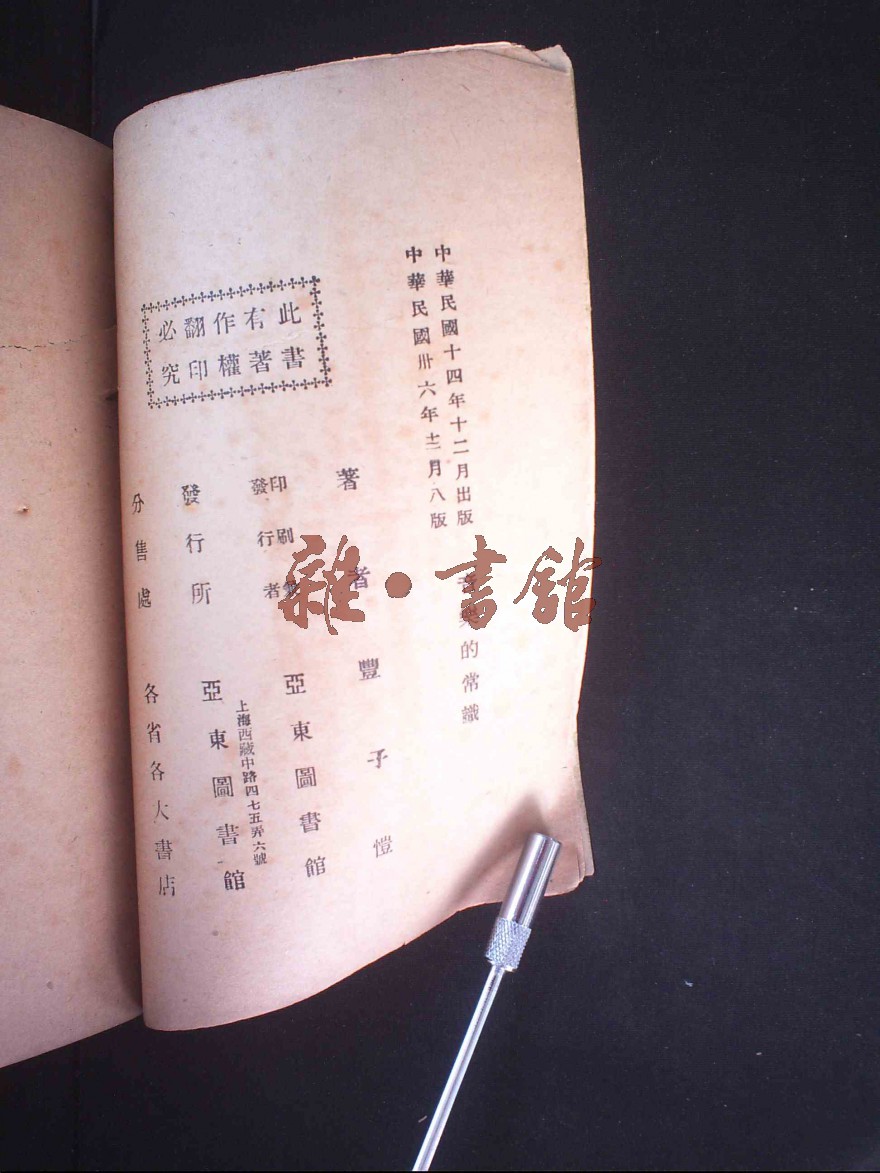 中華民國十四年十二月出版
中華民國卅六年十二月八版
音樂的常識
著者 豐子愷
印刷兼
發行者
亞東圖書館
上海西藏中路四七五弄六號
發行所 亞東圖書館
分售處 各省各大書店
此書
有著
作權
翻印
必究
雜•書館